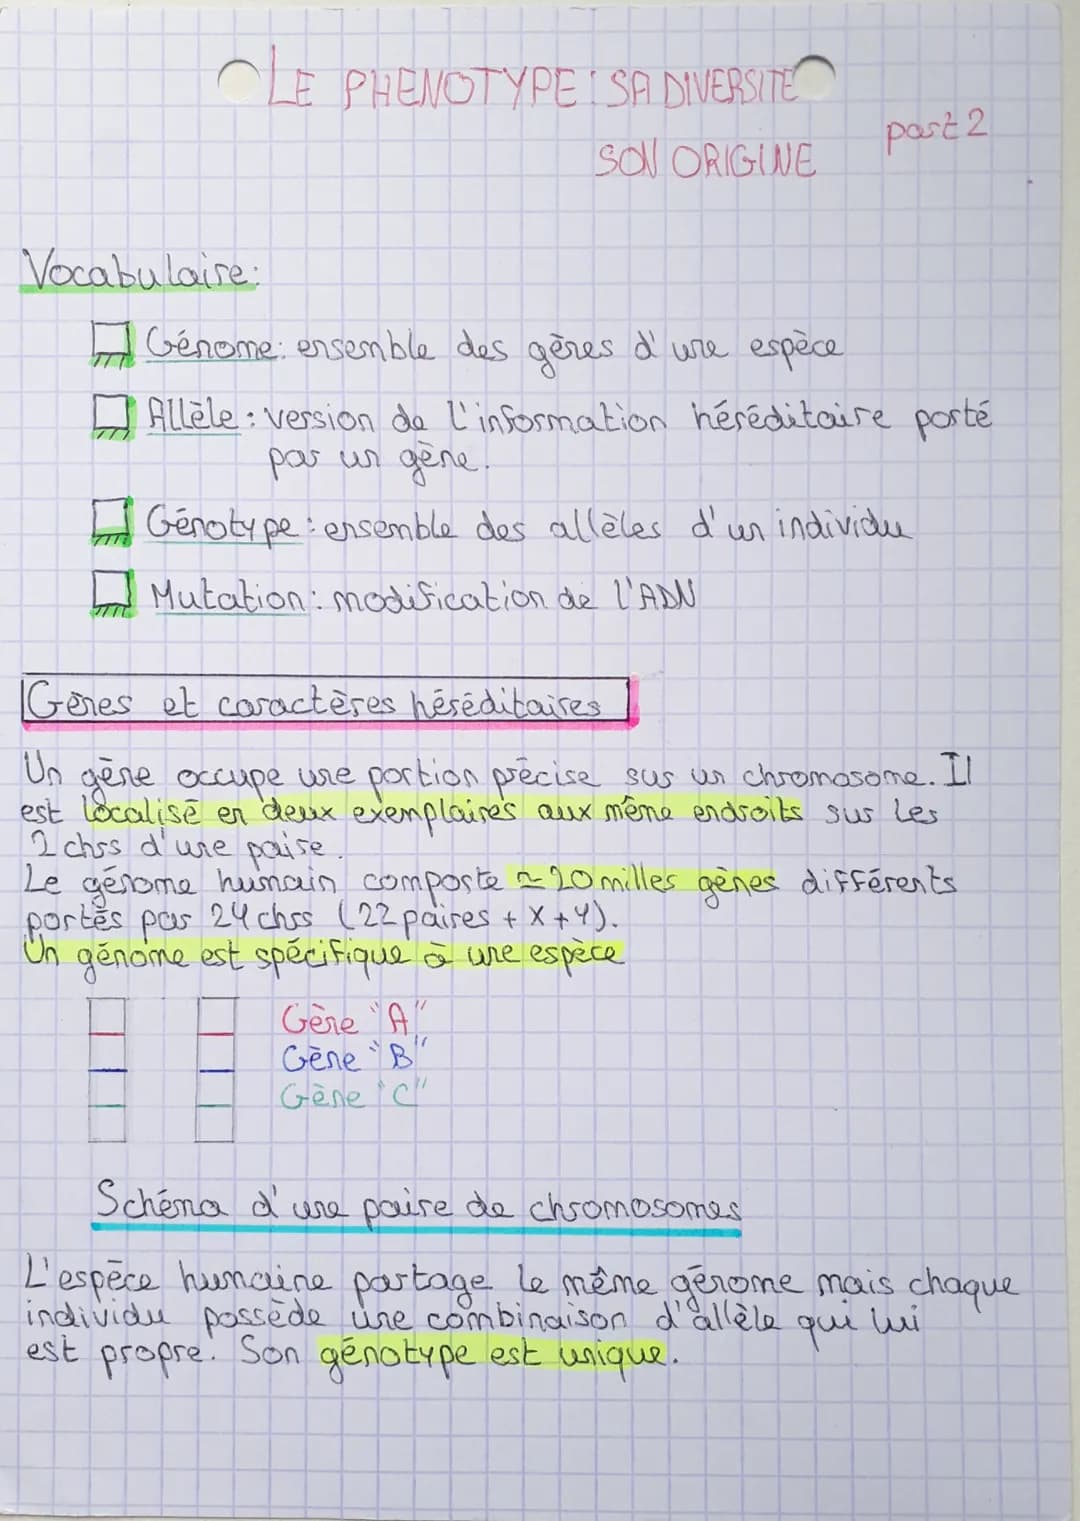 LE PHENOTYPE : SA DIVERSITE
SON ORIGINE
part 2
Vocabulaire:
Génome: ensemble des gènes d'une espèce
Allèle : version de l'information héréditaire porté
par un gène.
Génotype : ensemble des allèles d'un individu
Mutation : modification de l'ADN
Gènes et caractères héréditaires
Un gène occupe une portion précise sur un chromosome. Il
est localisé en deux exemplaires aux même endroits sur les
2 chrs d'une paire.
Le génome humain comporte ≃ 20 milles gènes différents
portés par 24 chrs (22 paires + X + Y).
Un génome est spécifique à une espèce
Gène "A"
Gène "B"
Gène "C"
Schéma d'une paire de chromosomes
L'espèce humaine partage le même génome mais chaque
individu possède une combinaison d'allèle qui lui
est propre. Son génotype est unique.